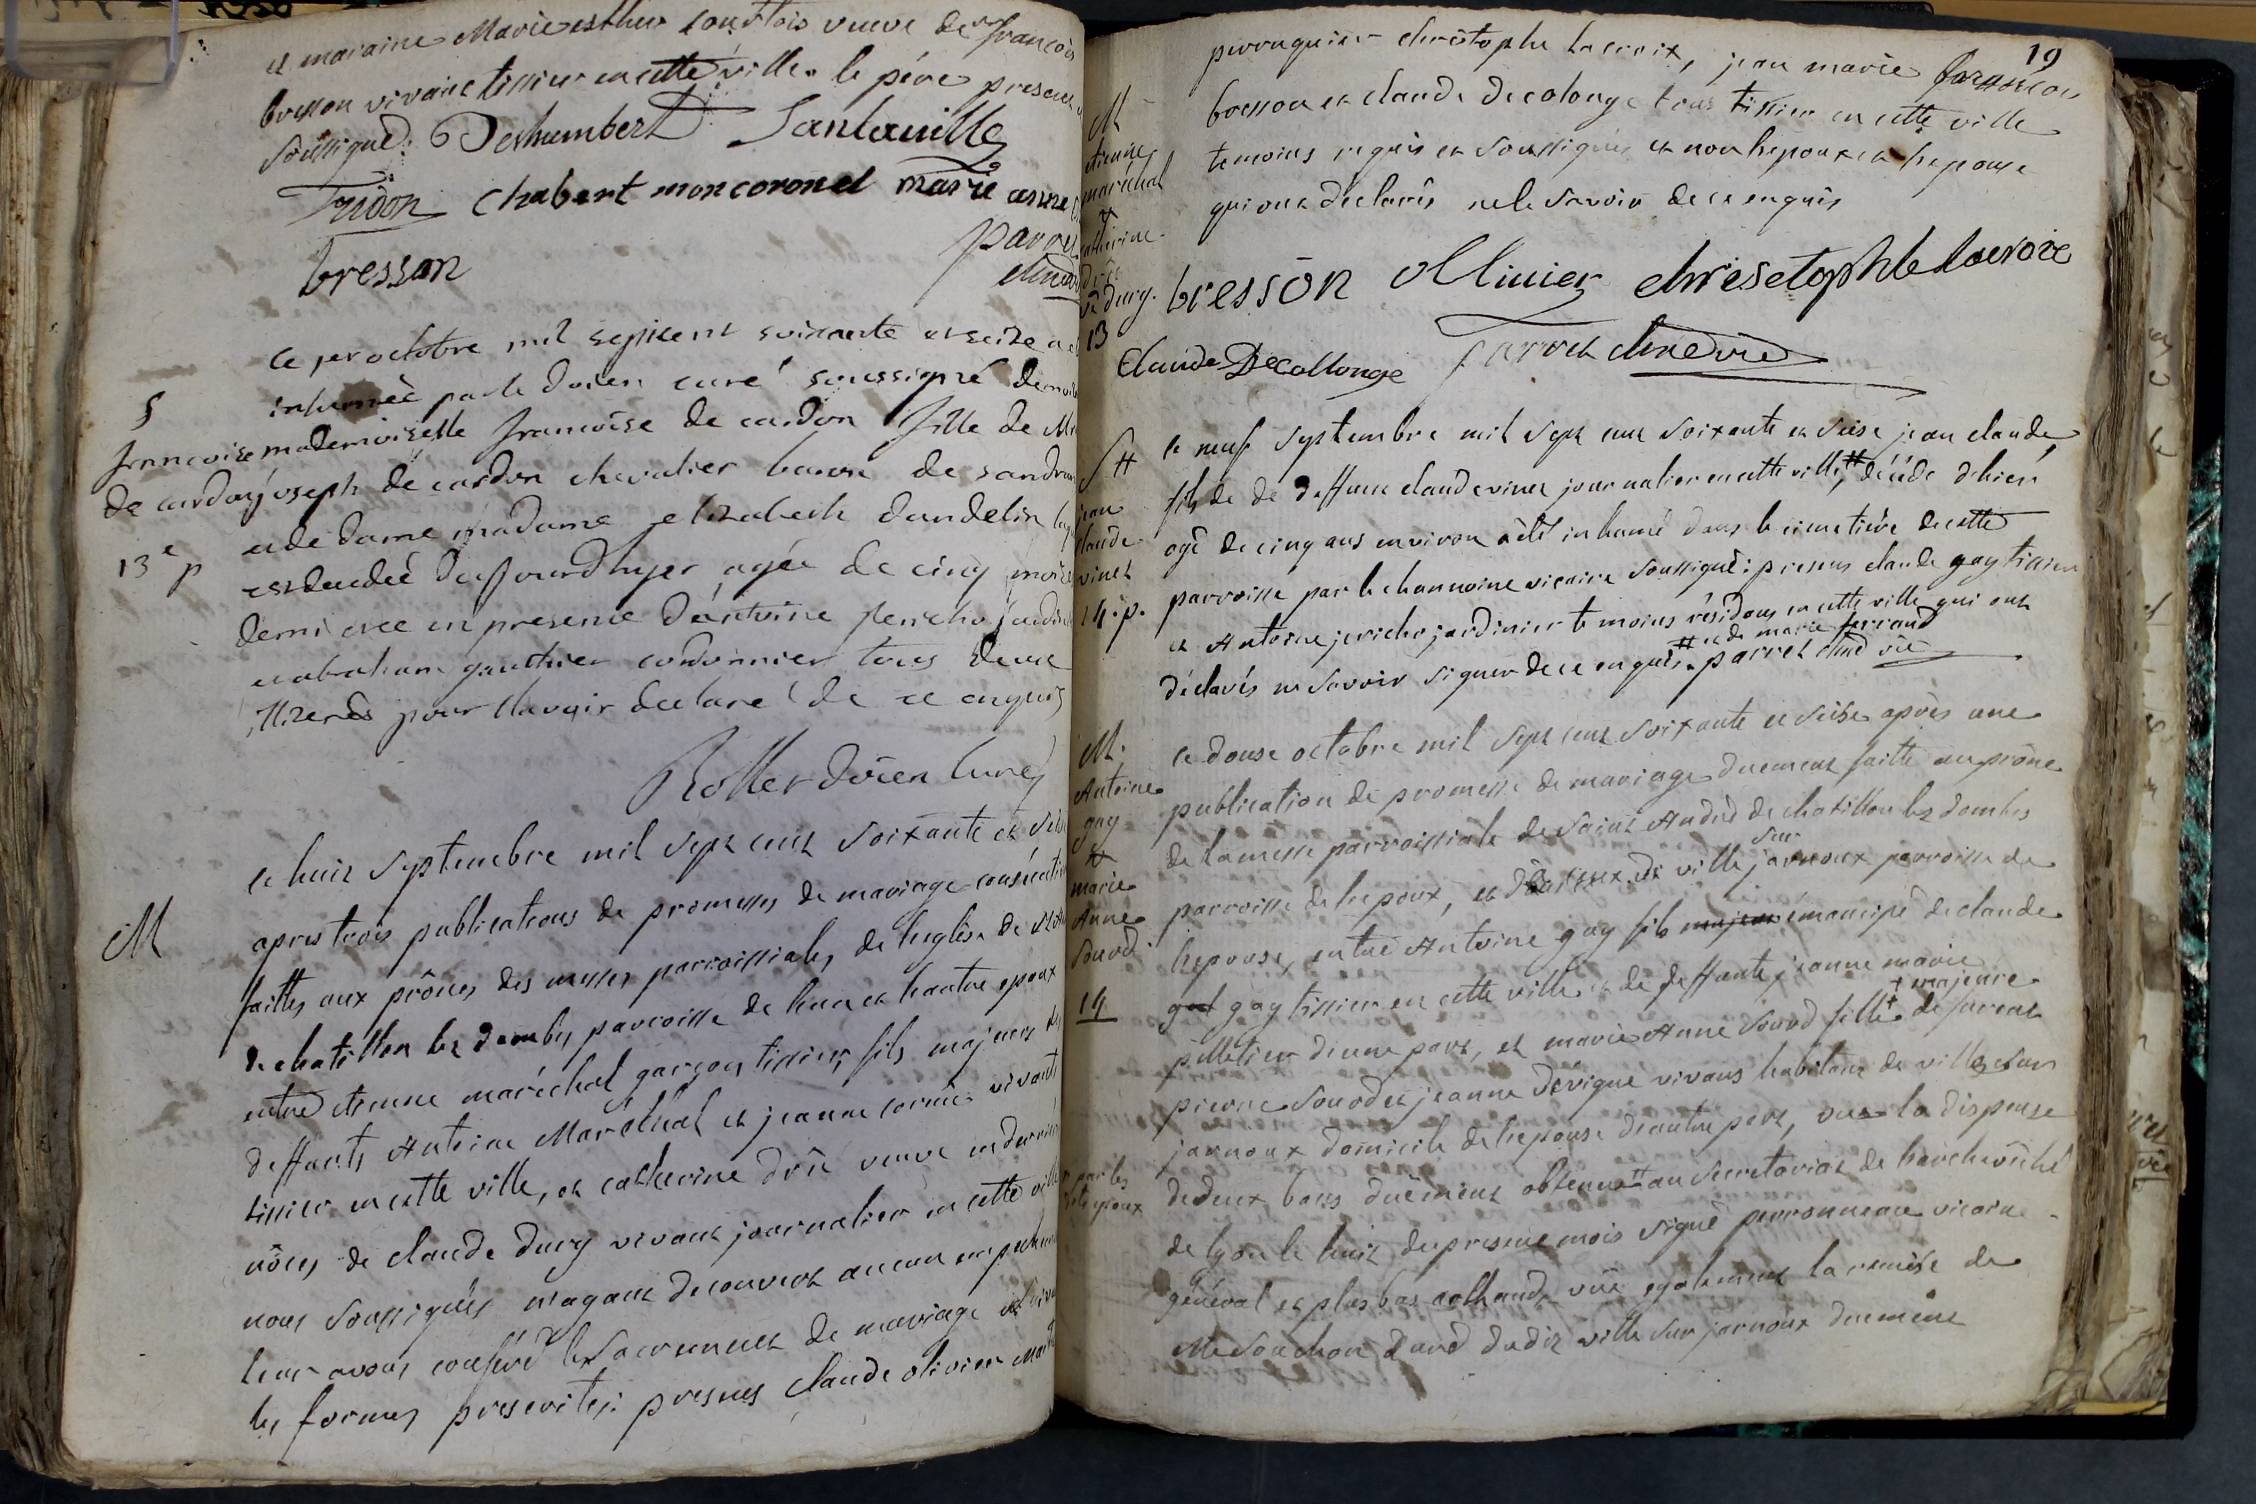 et maraine Marie esther courtois veuve de françois
bresson vivant tissier en cette ville. le père present
soussigné. Deshumbert Santaville
Tridon chabert moncoronel marie anne
bresson parret
chne vic
ce per octobre mil septcent soixante et seize a eté
inhumée par le doien curé soussigné demoiselle
mademoiselle francoise de cardon fille de Mr
joseph de cardon chevalier baron de sandran
et de dame madame elizabeth dandelin
est decedeé aujourdhyer agée de cinq mois
demi cree en presence d'antoine jericho jardinier
et abraham gauthier cordonnier tous deux
illiterés pour l'avoir declaré de ce enquis
Rollet doien curé
§
francoise
de cardon
13e p
M
ce huit septembre mil sept cent soixante et seise
apres trois publications de promesses de mariage consécutives
faittes aux prônes des messes parroissiales, de l'eglise de st
de chatillon les dombes parroisse de l'un et l'autre epoux
entre etienne maréchal garçon tissier, fils majeurs de
deffunts Antoine Maréchal et jeanne cornu vivants
tissier en cette ville, et catherine drie veuve en derniere
nôces de claude durg vivant journalier en cette ville
nous soussignés n'ayant decouvert aucun empechement
leur avons conféré le sacrement de mariage
les formes prescrites: presents claude olivier
19
perruquier christophe lacroix, jean marie françois
bresson et claude decolonge tous tissier en cette ville
temoins requis et soussignés et non l'epoux et l'epouse
qui ont déclarés ne le savoir de ce enquis
bresson ollivier chresetophle lacroix
Claude Decollonge parret chne vic
M
etienne
maréchal
et
catherine
drie
ve durg.
13
ce neuf septembre mil sept cent soixante et seise jean claude,
fils de de deffunt claude vinet journalier en cette ville, # décédé d'hier
agé de cinq ans environ a été inhumé dans le cimetière de cette
parroisse par le channoine vicaire soussigné: presens claude gay tissier
et Antoine jericho jardinier temoins résidans en cette ville qui ont
déclarés ne savoir signer de ce enquis. # et de marie ferrand parret chne vic
S #
jean
claude
vinet
14. p.
ce douse octobre mil sept cent soixante et seise après une
publication de promesse de mariage duement faitte au prône
de la messe parroissiale de saint André de chatillon les dombes
parroisse de l'epoux, et de ville sur jarnoux parroisse de
l'epouse, entre Antoine gay fils majeur émancipé de claude
gay tissier en cette ville et de deffunte jeanne marie
pelletier d'une part, et marie Anne sourd fille † majeure de
pierre sourd et jeanne dévigne vivans habitans de ville sur
jarnoux domicile de l'epouse d'autre part, vue la dispense
de deux bans duëment obtenue # au secretariat de l'archevêché
de lyon le huit du present mois signé perronneau vicaire
général et plus bas rolland, vûe egalement la remise de
Me souchon curé dudit ville sur jarnoux duement
M.
Antoine
gay
et
marie
Anne
sourd
14
# par les
dits epoux